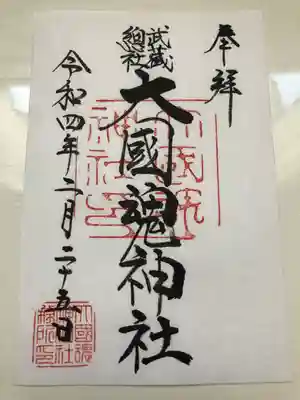 奉拝
武蔵
総社
大國魂神社
令和四年二月二十五日